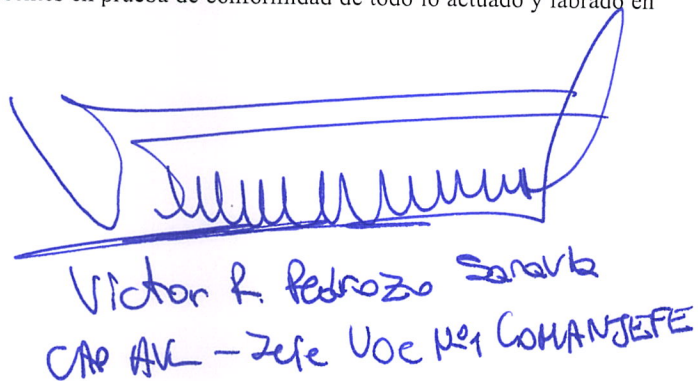 en prueba de conformidad de todo lo actuado y labrado en
Victor R. Pedrozo Saravia
CAP AV - Jefe UOE Nº1 COMANJEFE